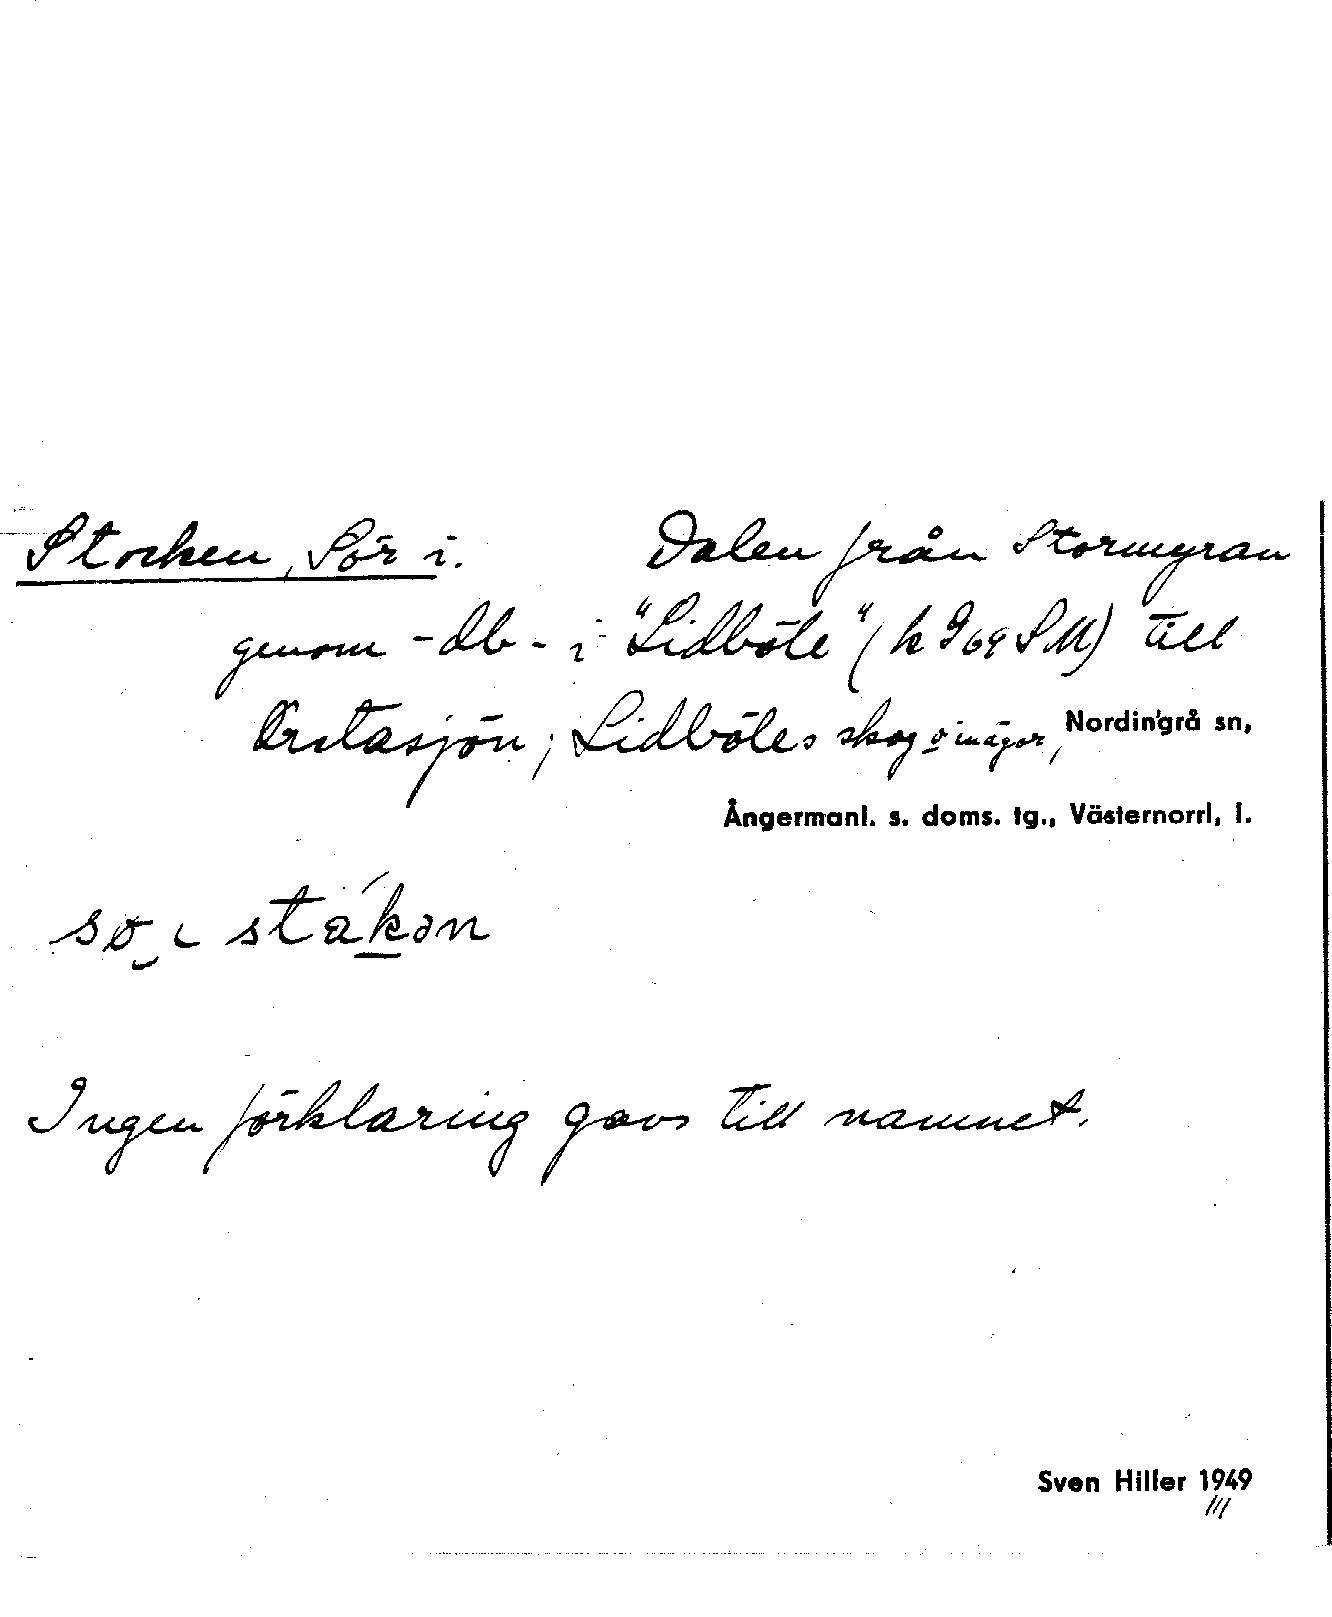 Stocken, Sör i. Dalen från Stormyran
genom -db- i "Lidböle" (k 9 69 SM) till
Örstasjön; Lidböles skog o inägor, Nordingrå sn,
Ångermanl. s. doms. tg., Västernorrl. l.
sø ɩ stákən
Ingen förklaring gavs till namnet.
Sven Hiller 1949